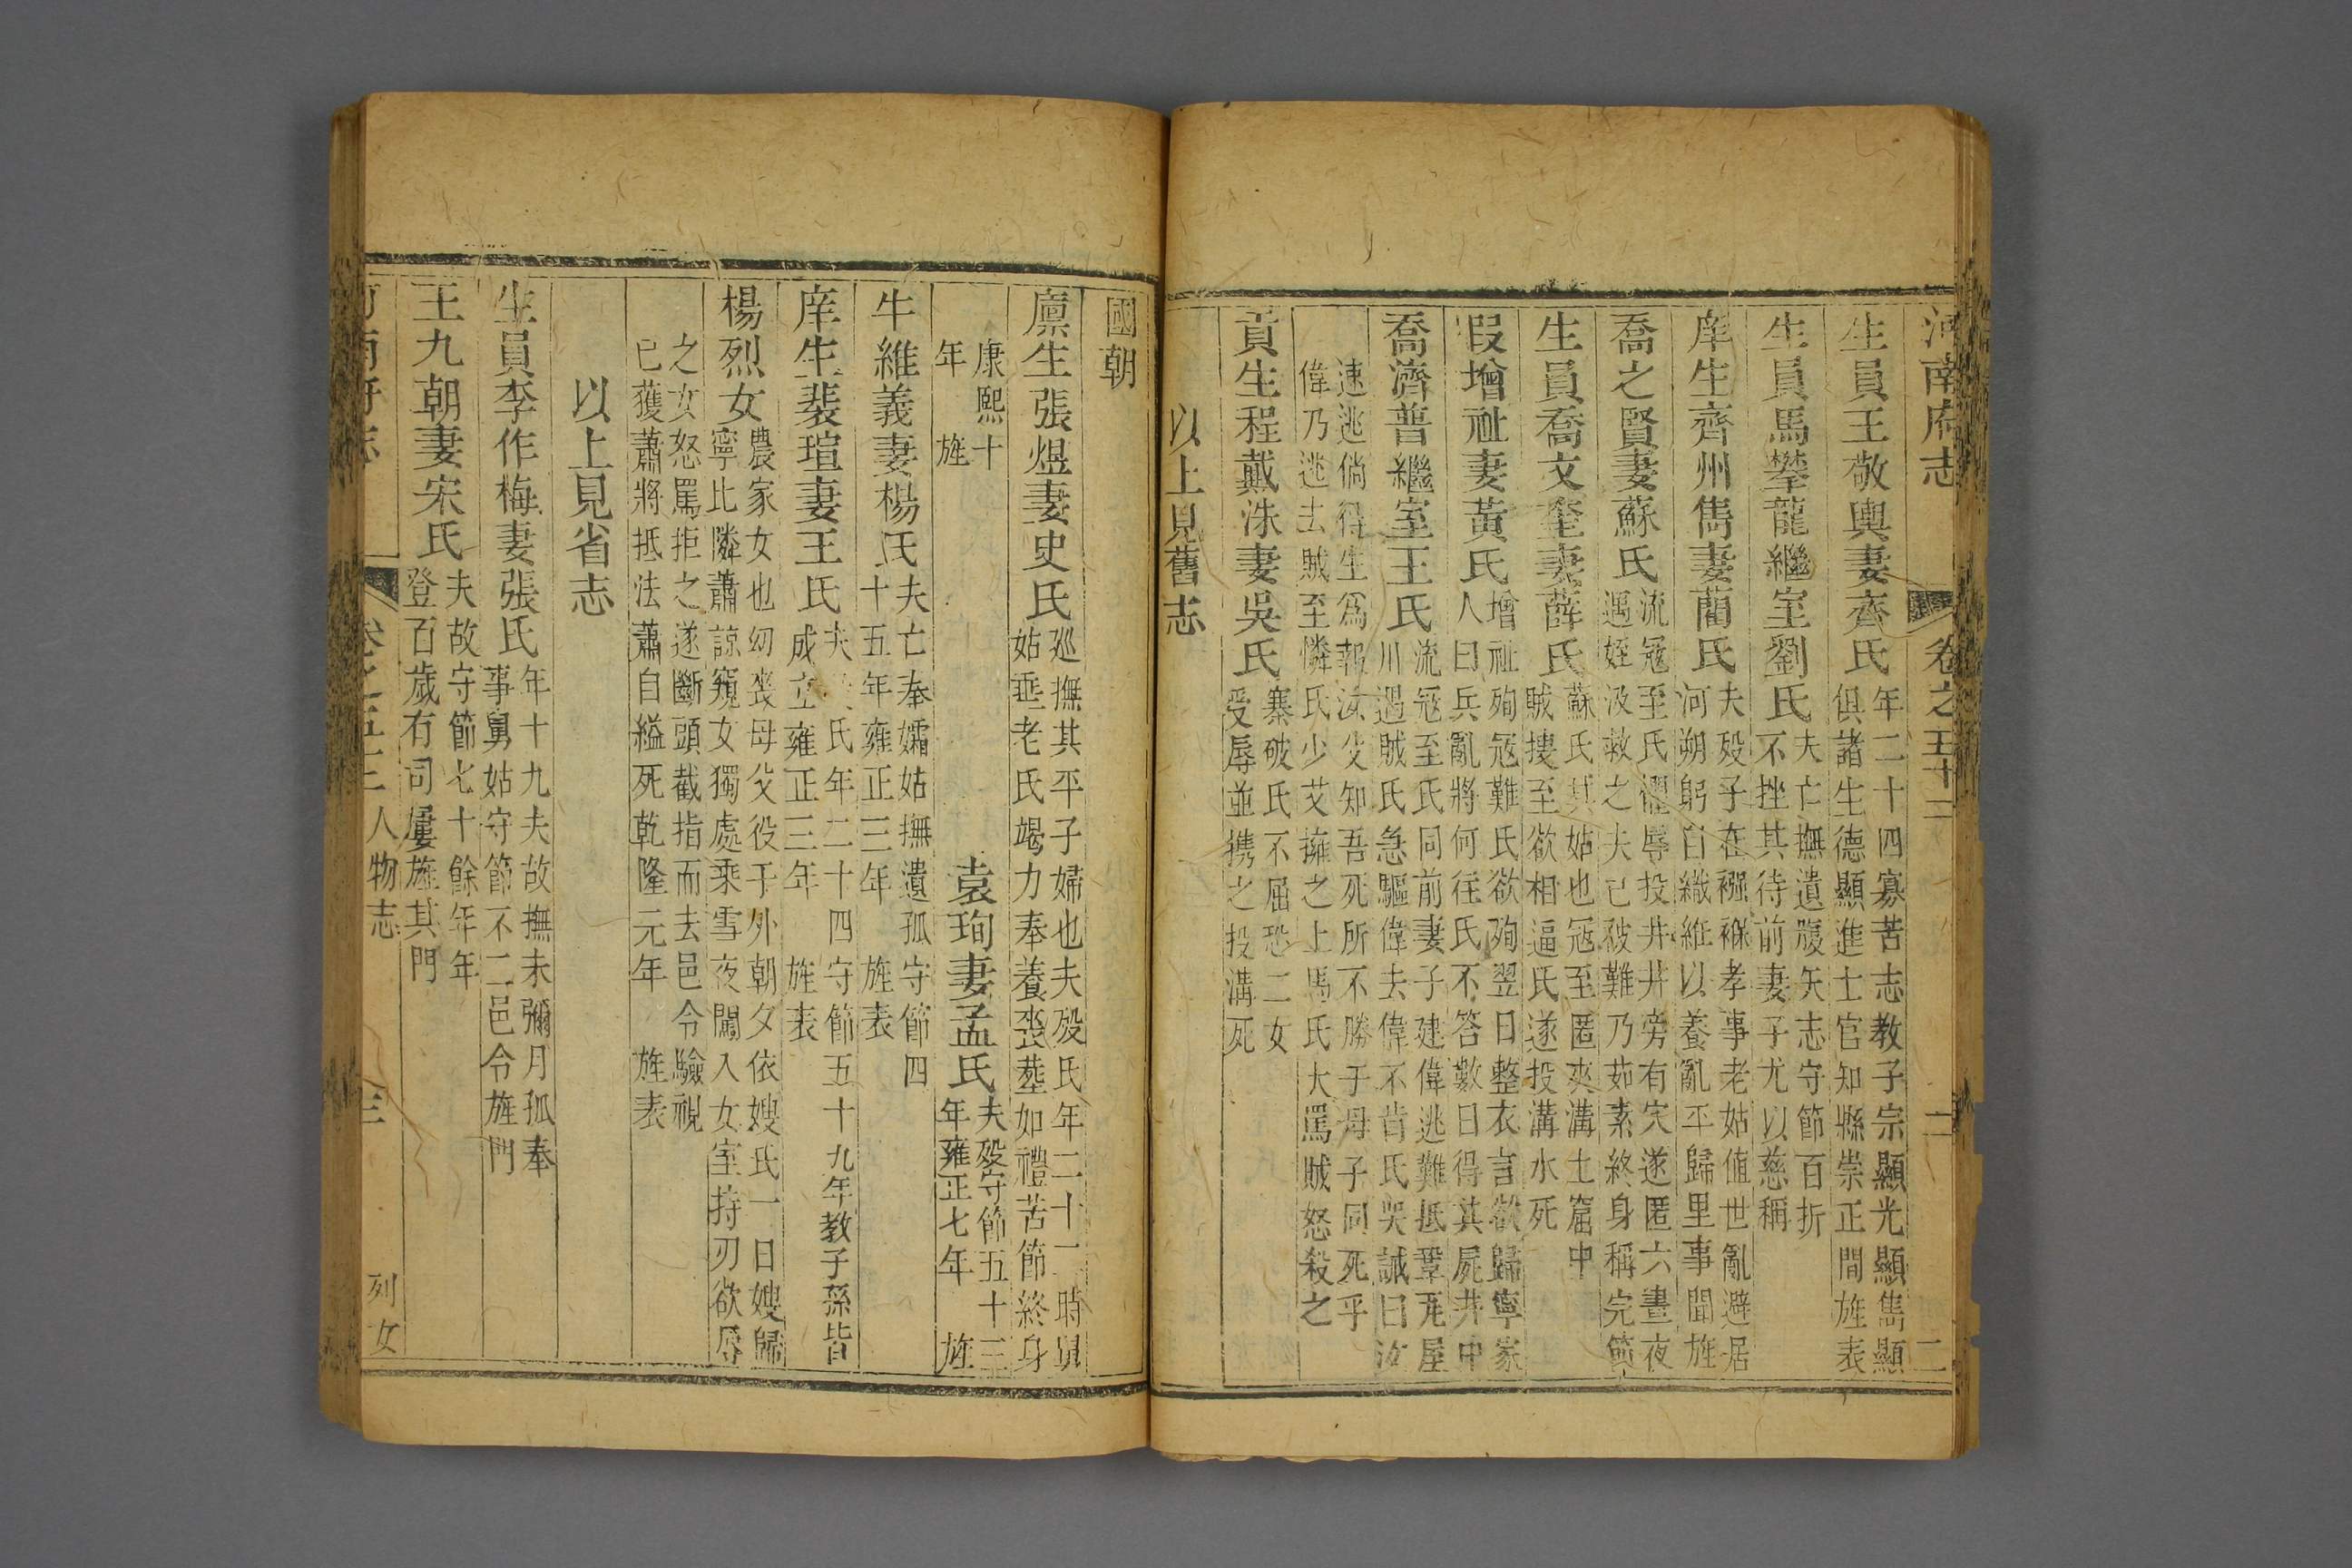 河南府志 卷之五十三 二
生員王敬輿妻齊氏 年二十四寡苦志教子宗顯光顯雋顯
俱諸生德顯進士官知縣崇正間旌表
生員馬攀龍繼室劉氏 夫亡撫遺腹矢志守節百折
不挫其待前妻子尤以慈稱
庠生齊州雋妻藺氏 夫歿子在襁褓孝事老姑値世亂避居
河朔躬自織絍以養亂平歸里事聞旌
喬之賢妻蘇氏 流寇至氏懼辱投井井旁有穴遂匿六晝夜
遇姪汲救之夫已被難乃茹素終身稱完節
生員喬文奎妻薛氏 蘇氏其姑也寇至匿夾溝土窟中
賊摟至欲相逼氏遂投溝水死
段增祉妻黃氏 增祉殉寇難氏欲殉翌日整衣言欲歸寧家
人曰兵亂將何往氏不答數日得其屍井中
喬濟普繼室王氏 流寇至氏同前妻子建偉逃難抵鞏甩屋
川遇賊氏急驅偉去偉不肯氏哭誡曰汝
速逃倘得生爲報汝父知吾死所不勝于母子同死乎
偉乃逃去賊至憐氏少艾擁之上馬氏大罵賊怒殺之
貢生程戴洙妻吳氏 寨破氏不屈恐二女
受辱並携之投溝死
以上見舊志
國朝
廪生張煜妻史氏 廵撫其平子婦也夫歿氏年二十一時舅
姑垂老氏竭力奉養喪塟如禮苦節終身
康熙十
年 旌
袁珣妻孟氏 夫歿守節五十三
年雍正七年 旌
牛維義妻楊氏 夫亡奉孀姑撫遺孤守節四
十五年雍正三年 旌表
庠生裴瑄妻王氏 夫 氏年二十四守節五十九年教子孫皆
成立雍正三年 旌表
楊烈女 農家女也幼喪母父役于外朝夕依嫂氏一日嫂歸
寧比隣蕭諒窺女獨處乘雪夜闖入女室持刃欲辱
之女怒罵拒之遂斷頭截指而去邑令驗視
已獲蕭將抵法蕭自縊死乾隆元年 旌表
以上見省志
生員李作梅妻張氏 年十九夫故撫未彌月孤奉
事舅姑守節不二邑令旌門
王九朝妻宋氏 夫故守節七十餘年年
登百歲有司屢旌其門
河南府志 卷之五十 人物志 三 列女